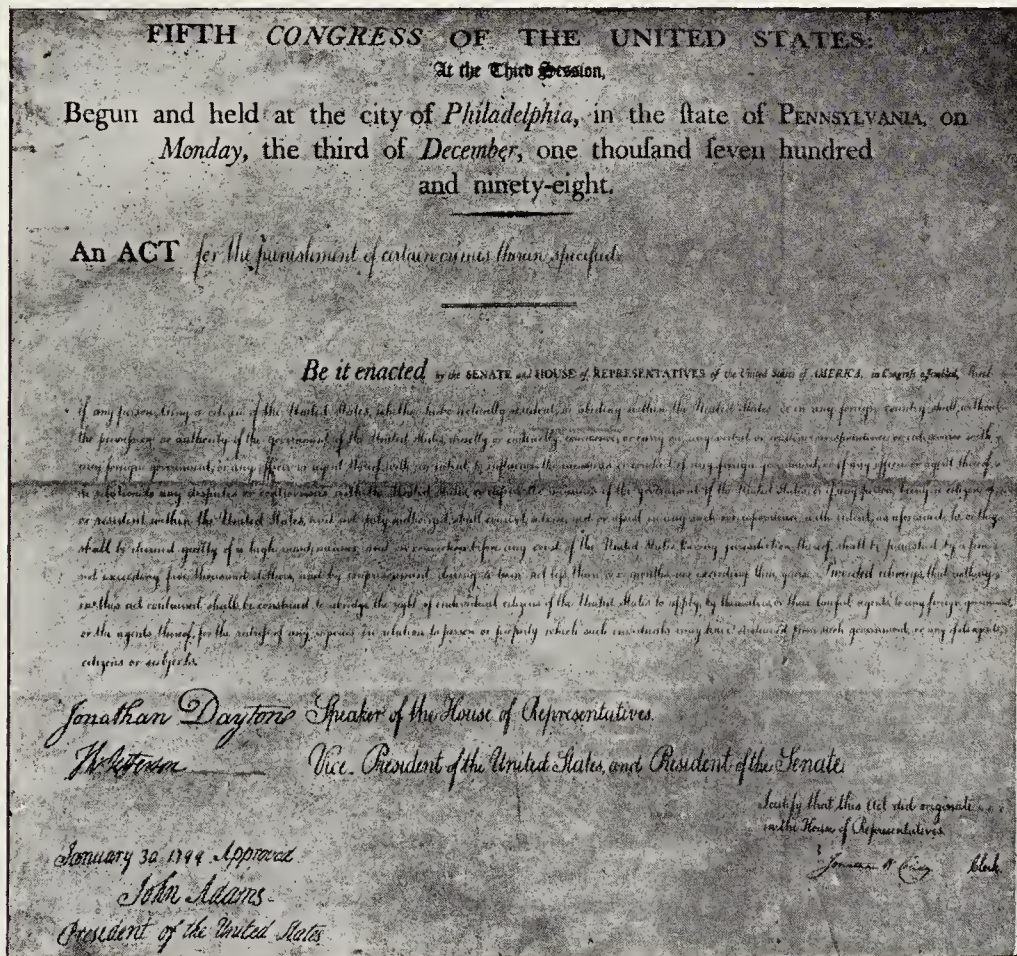 FIFTH CONGRESS OF THE UNITED STATES:
At the Third Session,
Begun and held at the city of Philadelphia, in the ſtate of PENNSYLVANIA, on
Monday, the third of December, one thouſand ſeven hundred
and ninety-eight.
An ACT for the punishment of certain crimes therein specified.
Be it enacted by the SENATE and HOUSE of REPRESENTATIVES of the United States of AMERICA, in Congreſs aſſembled, That
if any person, being a citizen of the United States, whether he be actually resident, or abiding within the United States, or in any foreign country, shall, without
the permission or authority of the government of the United States, directly or indirectly, commence, or carry on, any verbal or written correspondence or intercourse with
any foreign government, or any officer or agent thereof, with an intent to influence the measures or conduct of any foreign government, or of any officer or agent thereof,
in relation to any disputes or controversies with the United States, or defeat the measures of the government of the United States; or if any person, being a citizen of
or resident within the United States, and not duly authorized, shall counsel, advise, aid or assist in any such correspondence, with intent, as aforesaid, he or they
shall be deemed guilty of a high misdemeanor, and on conviction before any court of the United States having jurisdiction thereof, shall be punished by a fine
not exceeding five thousand dollars, and by imprisonment during a term not less than six months, nor exceeding three years: Provided always, that nothing
in this act contained shall be construed to abridge the right of individual citizens of the United States to apply, by themselves, or their lawful agents, to any foreign government
or the agents thereof, for the redress of any injuries in relation to person or property which such individuals may have sustained from such government, or any of its agents,
citizens or subjects.
Jonathan Dayton Speaker of the House of Representatives.
Th Jefferson Vice-President of the United States, and President of the Senate.
I certify that this Act did originate
in the House of Representatives.
Jonathan W Condy Clerk.
January 30 1799 Approved
John Adams
President of the United States